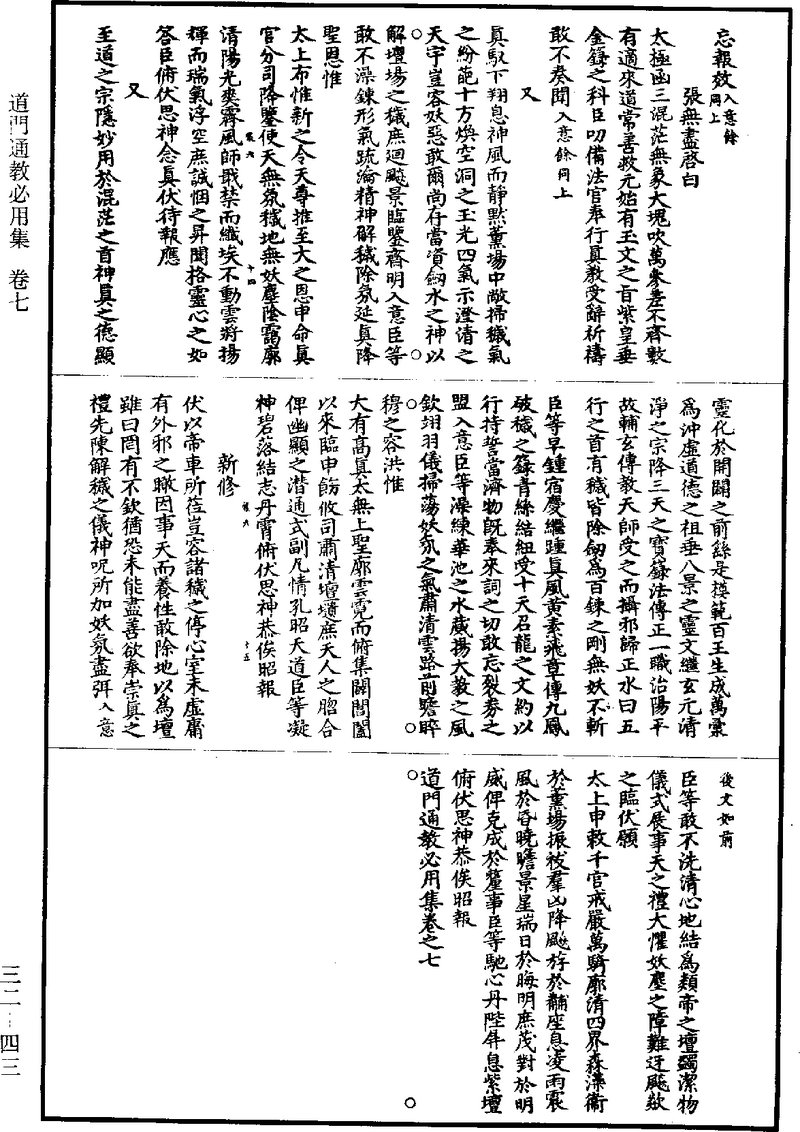 道門通教必用集　卷七
三二—四三
忘報效入意餘同上
張無盡啓白
太極函三混茫無象大塊吹萬參差不齊數
有適來道常善救元始有玉文之旨紫皇垂
金籙之科臣叨備法官奉行眞教受辭祈禱
敢不奏聞入意餘同上
又
眞馭下翔息神風而靜默薰場中敞掃穢氣
之紛葩十方煥空洞之玉光四氣示澄清之
天宇豈容妖惡敢爾尚存當資劒水之神以
解壇場之穢庶迴飈景臨鑒齋明入意臣等
敢不澡鍊形氣疏瀹精神解穢除氛延眞降
聖恩惟
太上布惟新之令天尊推至大之恩申命眞
官分司降鑒使天無氛穢地無妖塵陰靄廓
清陽光奕霽風師戢禁而纖埃不動雲將揚
輝而瑞氣浮空庶誠悃之昇聞格靈心之如
答臣俯伏思神念眞伏待報應
又
至道之宗隱妙用於混茫之首神眞之德顯
靈化於開闢之前繇是模範百王生成萬彙
爲沖虛道德之祖垂八景之靈文繼玄元清
淨之宗降三天之寶籙法傳正一職治陽平
故輔玄傳教天師受之而攝邪歸正水曰五
行之首有穢皆除劒爲百鍊之剛無妖不斬
臣等早鍾宿慶繼踵眞風黃素飛章傳九鳳
破穢之籙青絲結紐受十天召龍之文約以
行持誓當濟物旣奉來詞之切敢忘裂券之
盟入意臣等澡練華池之水蕆揚大教之風
欽翊羽儀掃蕩妖氛之氣肅清雲路前瞻晬
穆之容洪惟
大有高眞太無上聖廓雲霓而俯集闢閶闔
以來臨申飭攸司肅清壇壝庶天人之脗合
俾幽顯之潜通式副凡情孔昭天道臣等凝
神碧落結志丹霄俯伏思神恭俟昭報
新修
伏以帝車所莅豈容諸穢之停心室未虛庸
有外邪之瞰因事天而養性敢除地以爲壇
雖曰罔有不欽猶恐未能盡善欲奉崇眞之
禮先陳解穢之儀神呪所加妖氛盡弭入意
後文如前
臣等敢不洗清心地結爲類帝之壇蠲潔物
儀式展事天之禮大懼妖塵之障難迂飈欻
之臨伏願
太上申敕千官戒嚴萬騎廓清四界森藻衛
於薰場振祓羣凶降飈斿於黼座息凌雨震
風於昏曉瞻景星瑞日於晦明庶茂對於明
威俾克成於釐事臣等馳心丹陛屏息紫壇
俯伏思神恭俟昭報
道門通教必用集卷之七